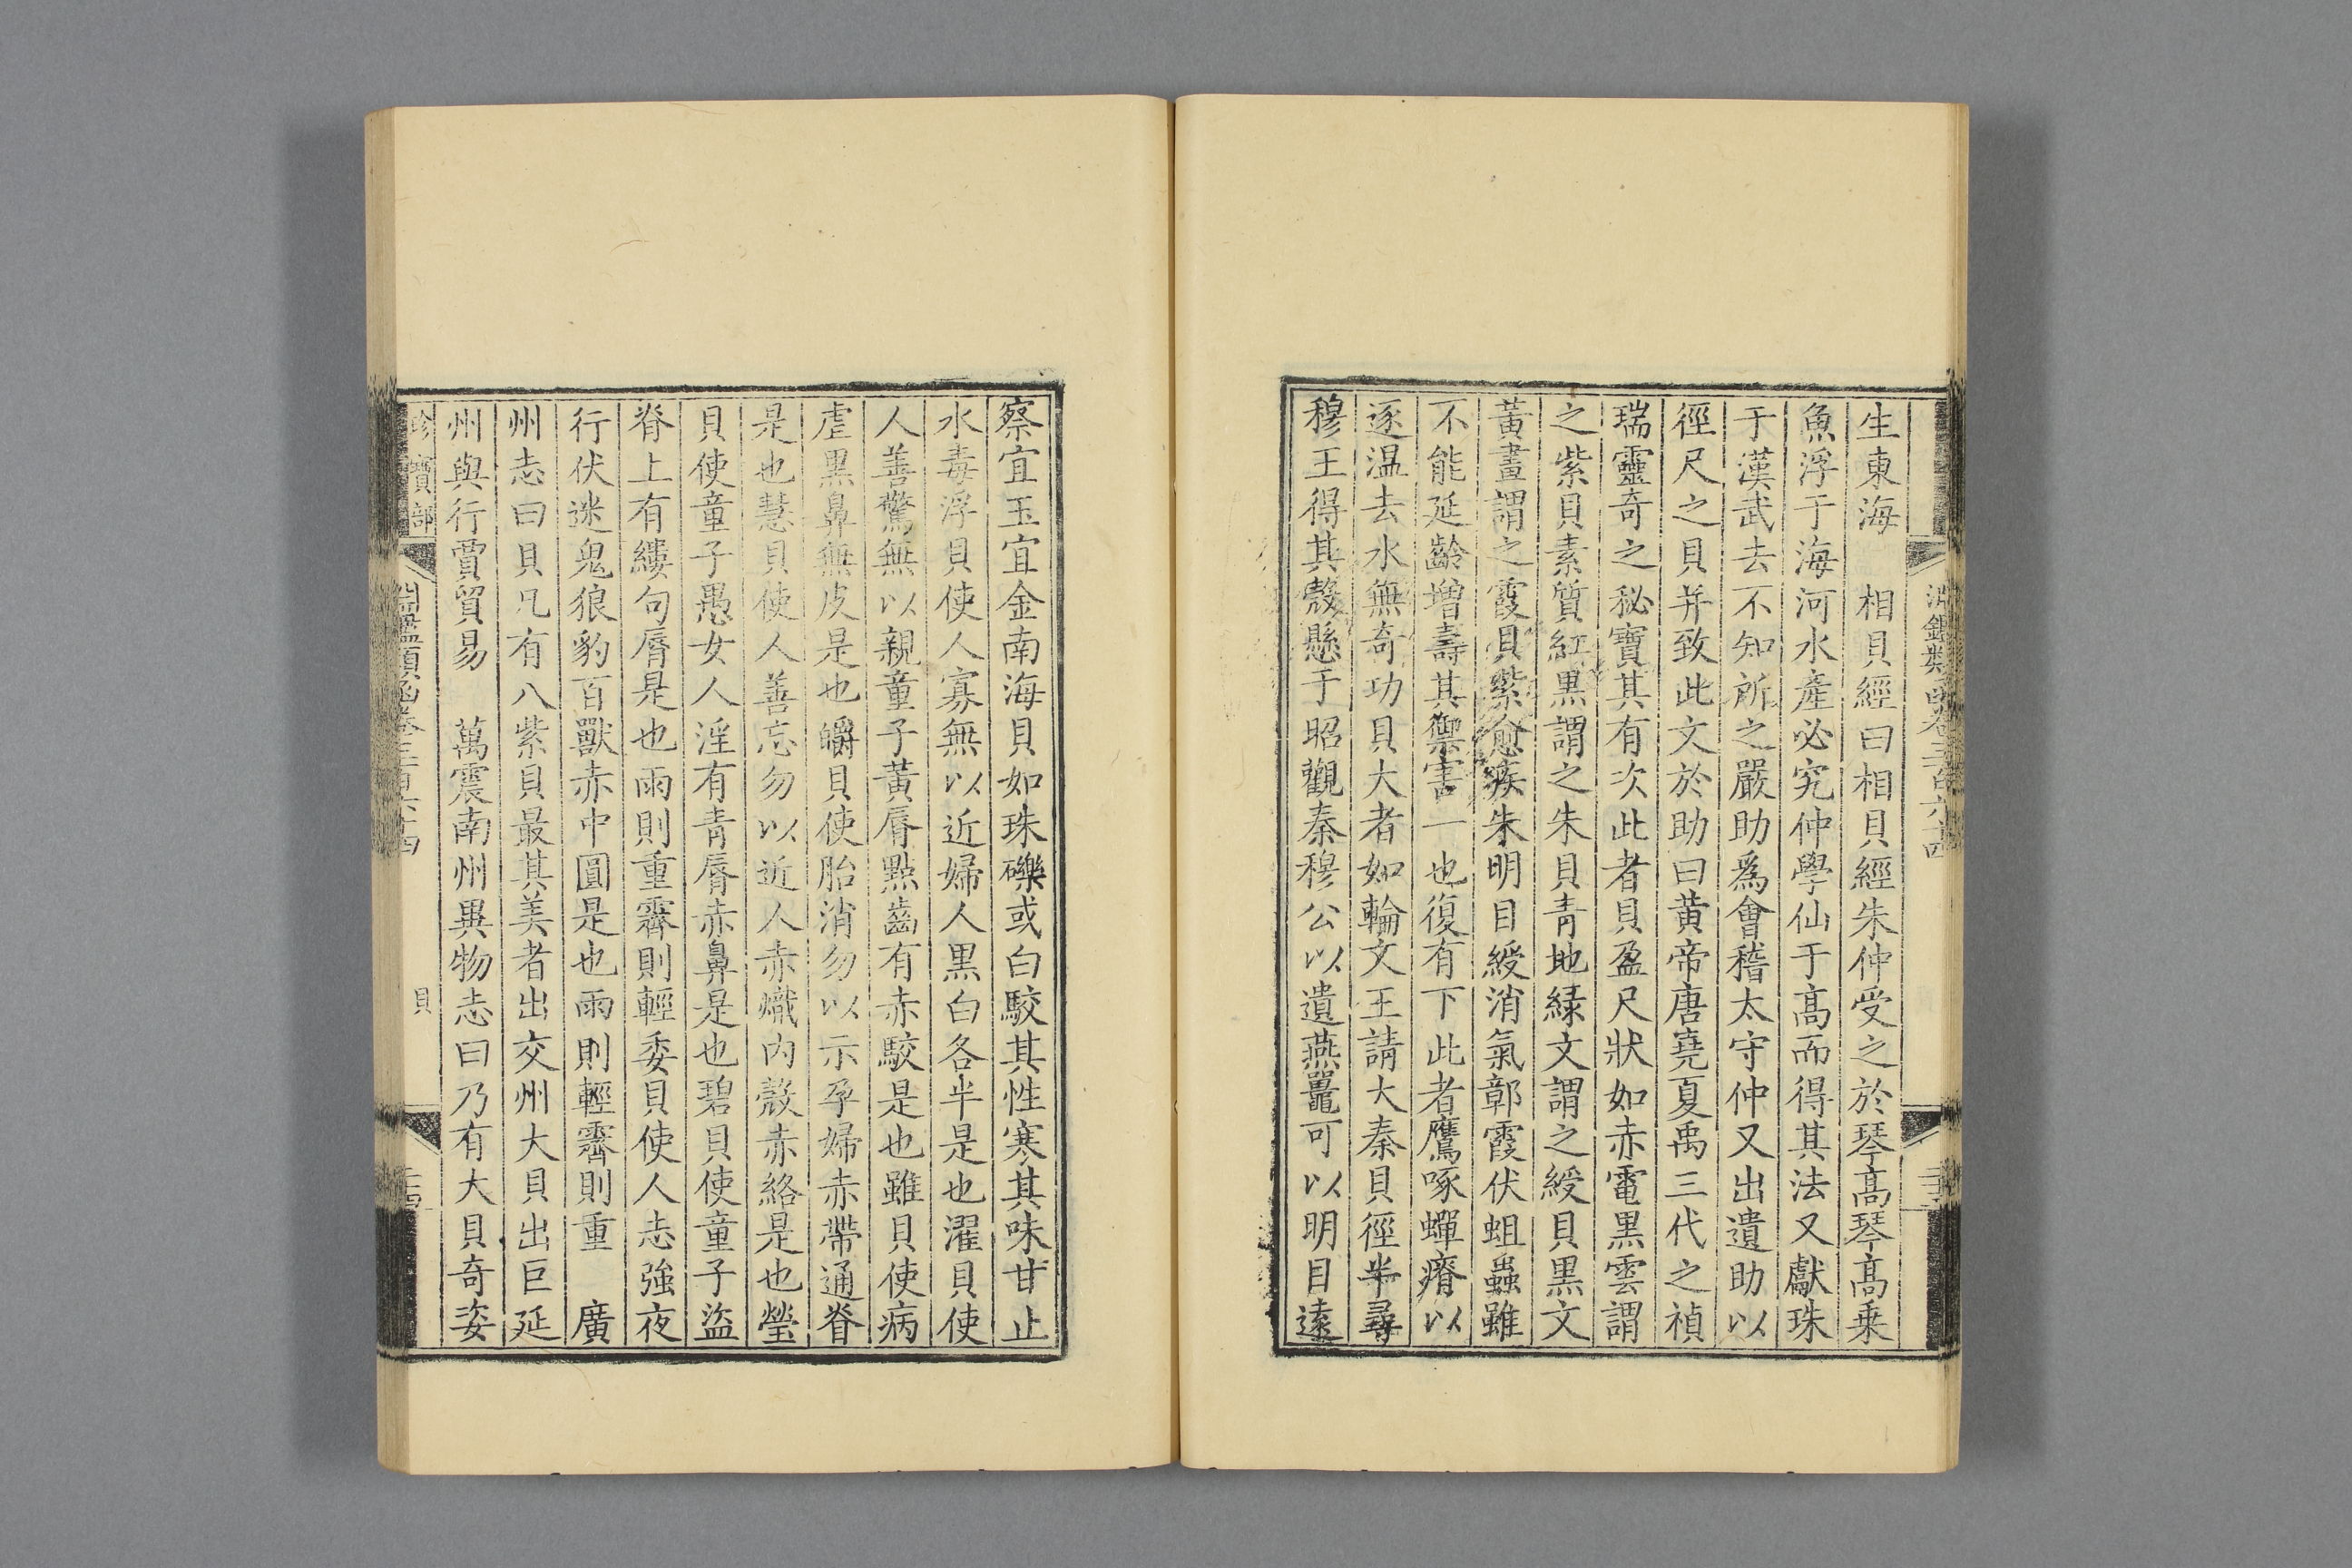 生東海　相貝經曰相貝經朱仲受之於琴高琴高乗
魚浮于海河水產必究仲學仙于高而得其法又獻珠
于漢武去不知所之嚴助爲會稽太守仲又出遺助以
徑尺之貝并致此文於助曰黄帝唐堯夏禹三代之禎
瑞靈奇之秘寶其有次此者貝盈尺狀如赤電黒雲謂
之紫貝素質紅黒謂之朱貝青地緑文謂之綬貝黒文
黃畫謂之霞貝紫愈疾朱明目綬消氣鄣霞伏蛆蟲雖
不能延齡增壽其禦害一也復有下此者鷹啄蟬瘠以
逐温去水無奇功貝大者如輪文王請大秦貝徑半尋
穆王得其殼懸于昭觀秦穆公以遺燕鼂可以明目遠
察宜玉宜金南海貝如珠礫或白駮其性寒其味甘止
水毒浮貝使人寡無以近婦人黒白各半是也濯貝使
人善驚無以親童子黃脣點齒有赤駮是也雖貝使病
虐黒鼻無皮是也皭貝使胎消勿以示孕婦赤帶通脊
是也慧貝使人善忘勿以近人赤熾内殼赤絡是也瑩
貝使童子愚女人淫有青脣赤鼻是也碧貝使童子盜
脊上有縷句脣是也雨則重霽則輕委貝使人志強夜
行伏迷鬼狼豹百獸赤中圓是也雨則輕霽則重　廣
州志曰貝凡有八紫貝最其美者出交州大貝出巨延
州與行賈貿易　萬震南州異物志曰乃有大貝奇姿
珍寶部　貝